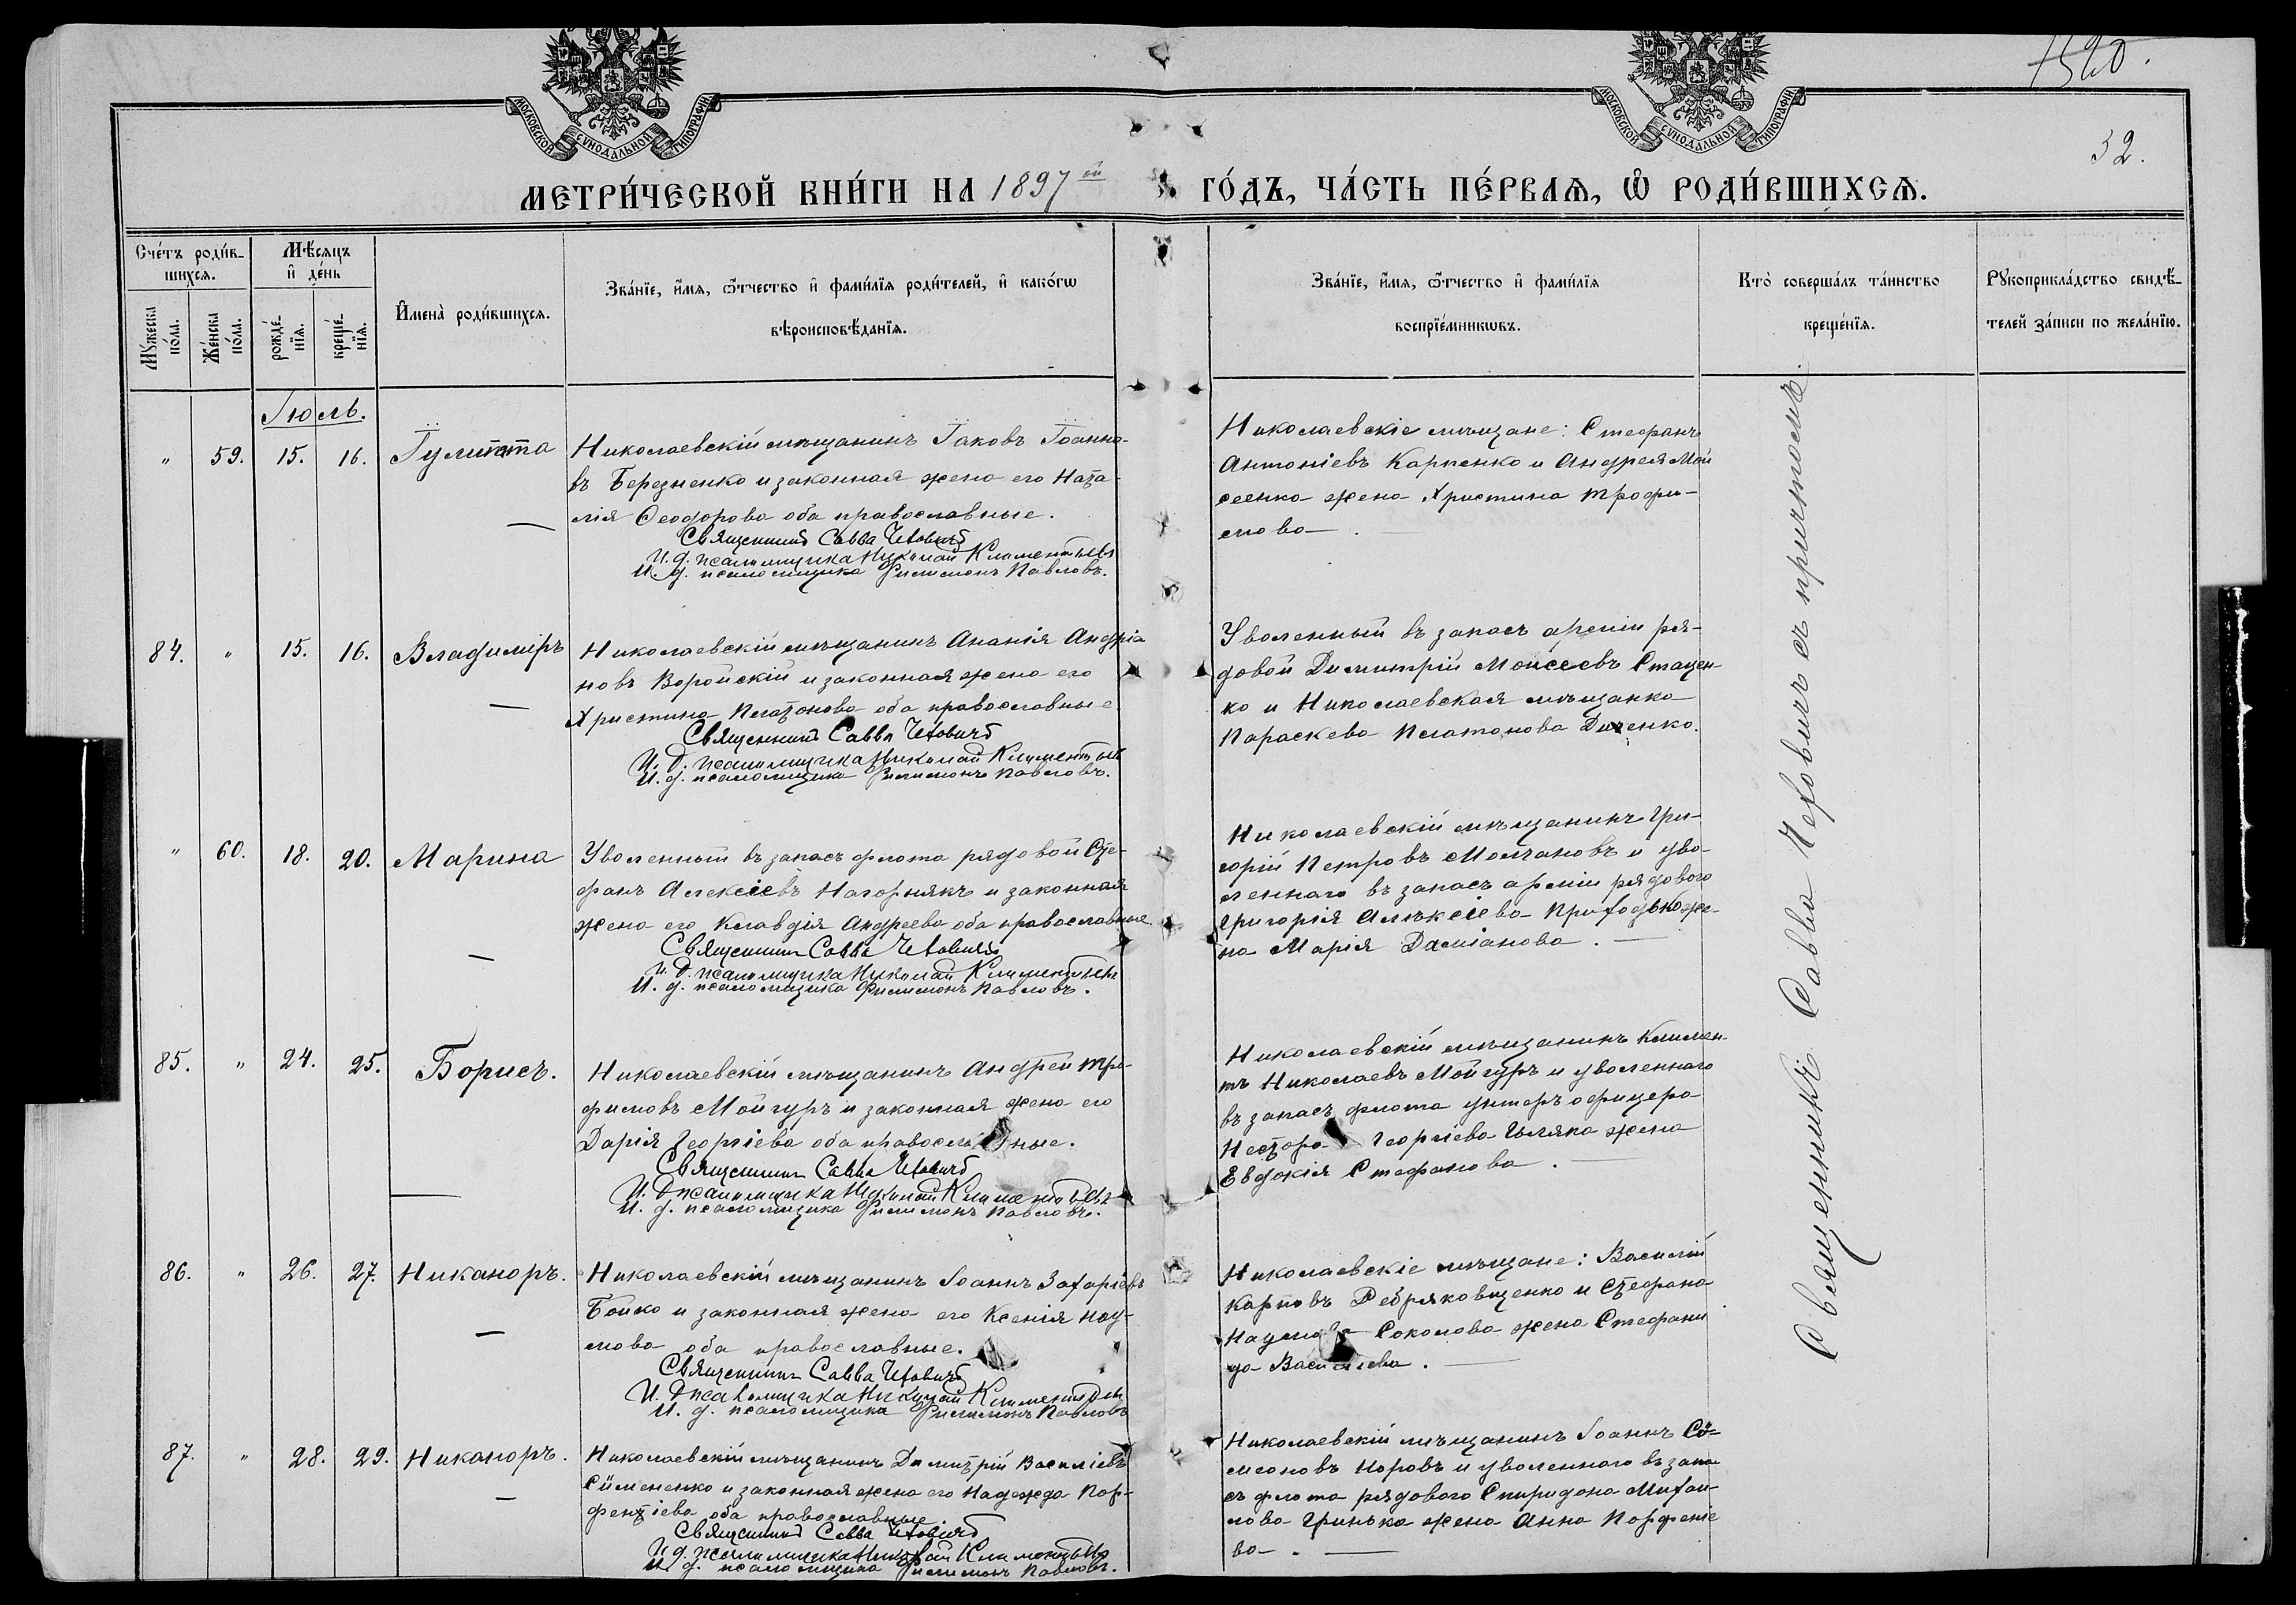 1520.
32.
МОСКОВСКОЙ СѴНОДАЛЬНОЙ ТИПОГРАФІИ
МОСКОВСКОЙ СѴНОДАЛЬНОЙ ТИПОГРАФІИ
МЕТРИ́ЧЕСКОЙ КНИ́ГИ НА 1897ой ГО́ДЪ, ЧА́СТЬ ПЕ́РВАѦ, Ѡ҆ РОДИ́ВШИХСѦ.
Сче́тъ роди́в-
шихсѧ.
Мꙋ́жеска по́ла.
Же́нска по́ла.
Мѣ́сѧцъ и҆ де́нь
рожде́-нїѧ.
креще́-нїѧ.
И҆мена̀ роди́вшихсѧ.
Зва́нїе, и҆́мѧ, ѻ҆́тчество и҆ фами́лїѧ роди́телей, и҆ како́гѡ
вѣроисповѣ́данїѧ.
Зва́нїе, и҆́мѧ, ѻ҆́тчество и҆ фами́лїѧ
воспрїе́мникѡвъ.
Кто̀ соверша́лъ та́инство
креще́нїѧ.
Рꙋкоприкла́дство свидѣ́-
телей за́писи по жела́нїю.
Іюль.
" 59. 15. 16. Іулитта
Николаевскій мѣщанинъ Іаковъ Іоанно-
въ Березненко и законная жена его Ната-
лія Ѳеодорова оба православные.
Священникъ Савва Чеховичъ
И. д. псаломщика Николай Климентьевъ
И. д. псаломщика Филимонъ Павловъ.
Николаевскіе мѣщане: Стефанъ
Антоніевъ Карпенко и Андрея Мои
сеенко жена Христина Трофи-
мова
84. " 15. 16. Владиміръ
Николаевскій мѣщанинъ Ананія Андріа
новъ Воройскій и законная жена его
Христина Платонова оба православные
Священникъ Савва Чеховичъ
И. Д. псаломщика Николай Климентьевъ
И. д. псаломщика Филимонъ Павловъ.
Уволенный въ запасъ арміи ря-
довой Димитрій Моисеевъ Стацен-
ко и Николаевская мѣщанка
Параскева Платонова Диченко.
" 60. 18. 20. Марина
Уволенный въ запасъ флота рядовой Сте-
фанъ Алексіевъ Нагорнякъ и законная
жена его Клавдія Андреева оба православные
Священникъ Савва Чеховичъ
И. Д. псаломщика Николай Климентьевъ
И. д. псаломщика Филимонъ Павловъ.
Николаевскій мѣщанинъ Гри-
горій Петровъ Молчановъ и уво-
леннаго въ запасъ арміи рядового
Григорія Алексіева Приходько же-
на Марія Даміанова.
85. " 24. 25. Борисъ.
Николаевскій мѣщанинъ Андрей Тро-
фимовъ Мойгуръ и законная жена его
Дарія Георгіева оба православные.
Священникъ Савва Чеховичъ
И. Д псаломщика Николай Климентьевъ
И. д. псаломщика Филимонъ Павловъ.
Николаевскій мѣщанинъ Климен-
тъ Николаевъ Мойгуръ и уволеннаго
въ запасъ флота унтеръ офицера
Нестора Георгіева Гиляка жена
Евдокія Стефанова.
86. " 26. 27. Никаноръ.
Николаевскій мѣщанинъ Іоаннъ Захаріевъ
Бойко и законная жена его Ксенія Нау-
мова оба православные.
Священникъ Савва Чеховичъ
И. Д псаломщика Николай Климентьевъ
И. д. псаломщика Филимонъ Павловъ
Николаевскіе мѣщане: Василій
Карповъ и Стефана
Наумова Соколова жена Стефани
да Васильева.
87. " 28. 29. Никаноръ.
Николаевскій мѣщанинъ Димитрій Василіевъ
Симененко и законная жена его Надежда Пар-
фентіева оба православные.
Священникъ Савва Чеховичъ
И. д. псаломщика Николай Климентьевъ
И. д. псаломщика Филимонъ Павловъ.
Николаевскій мѣщанинъ Іоаннъ Сѵ-
меоновъ Норовъ и уволеннаго въ запа-
съ флота рядового Спиридона Михаи-
лова Гринька жена Анна Парфеніе
ва.
Священникъ Савва Чеховичъ съ причтомъ.